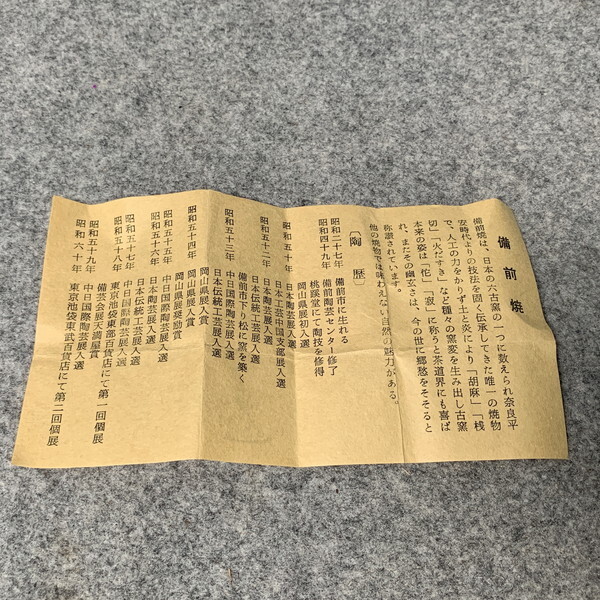 備前焼
備前焼は、日本の六古窯の一つに数えられ奈良平
安時代よりの技法を固く伝承してきた唯一の焼物
で、人工の力をかりず土と炎により「胡麻」「桟
切」「火だすき」など種々の窯変を生み出し古窯
本来の姿は「侘」「寂」に称うと茶道界にも喜ば
れ、またその幽玄さは、今の世に郷愁をそそると
称讃されています。
他の焼物では味わえない自然の魅力がある。
〔陶歴〕
昭和二十七年 備前市に生れる
昭和四十九年 備前陶芸センター修了
桃蹊堂にて陶技を修得
岡山県展初入選
昭和五十年 日本工芸会中国支部展入選
日本陶芸展入選
昭和五十二年 日本伝統工芸展入選
備前市下り松に窯を築く
昭和五十三年 中日国際陶芸展入選
日本伝統工芸展入選
岡山県展入賞
昭和五十四年 岡山県展入賞
岡山県展奨励賞
昭和五十五年 中日国際陶芸展入選
昭和五十六年 日本陶芸展入選
日本伝統工芸展入選
昭和五十七年 中日国際陶芸展入選
昭和五十八年 東京池袋東部百貨店にて第一回個展
備芸会展天満屋賞
昭和五十九年 中日国際陶芸展入選
昭和六十年 東京池袋東武百貨店にて第二回個展